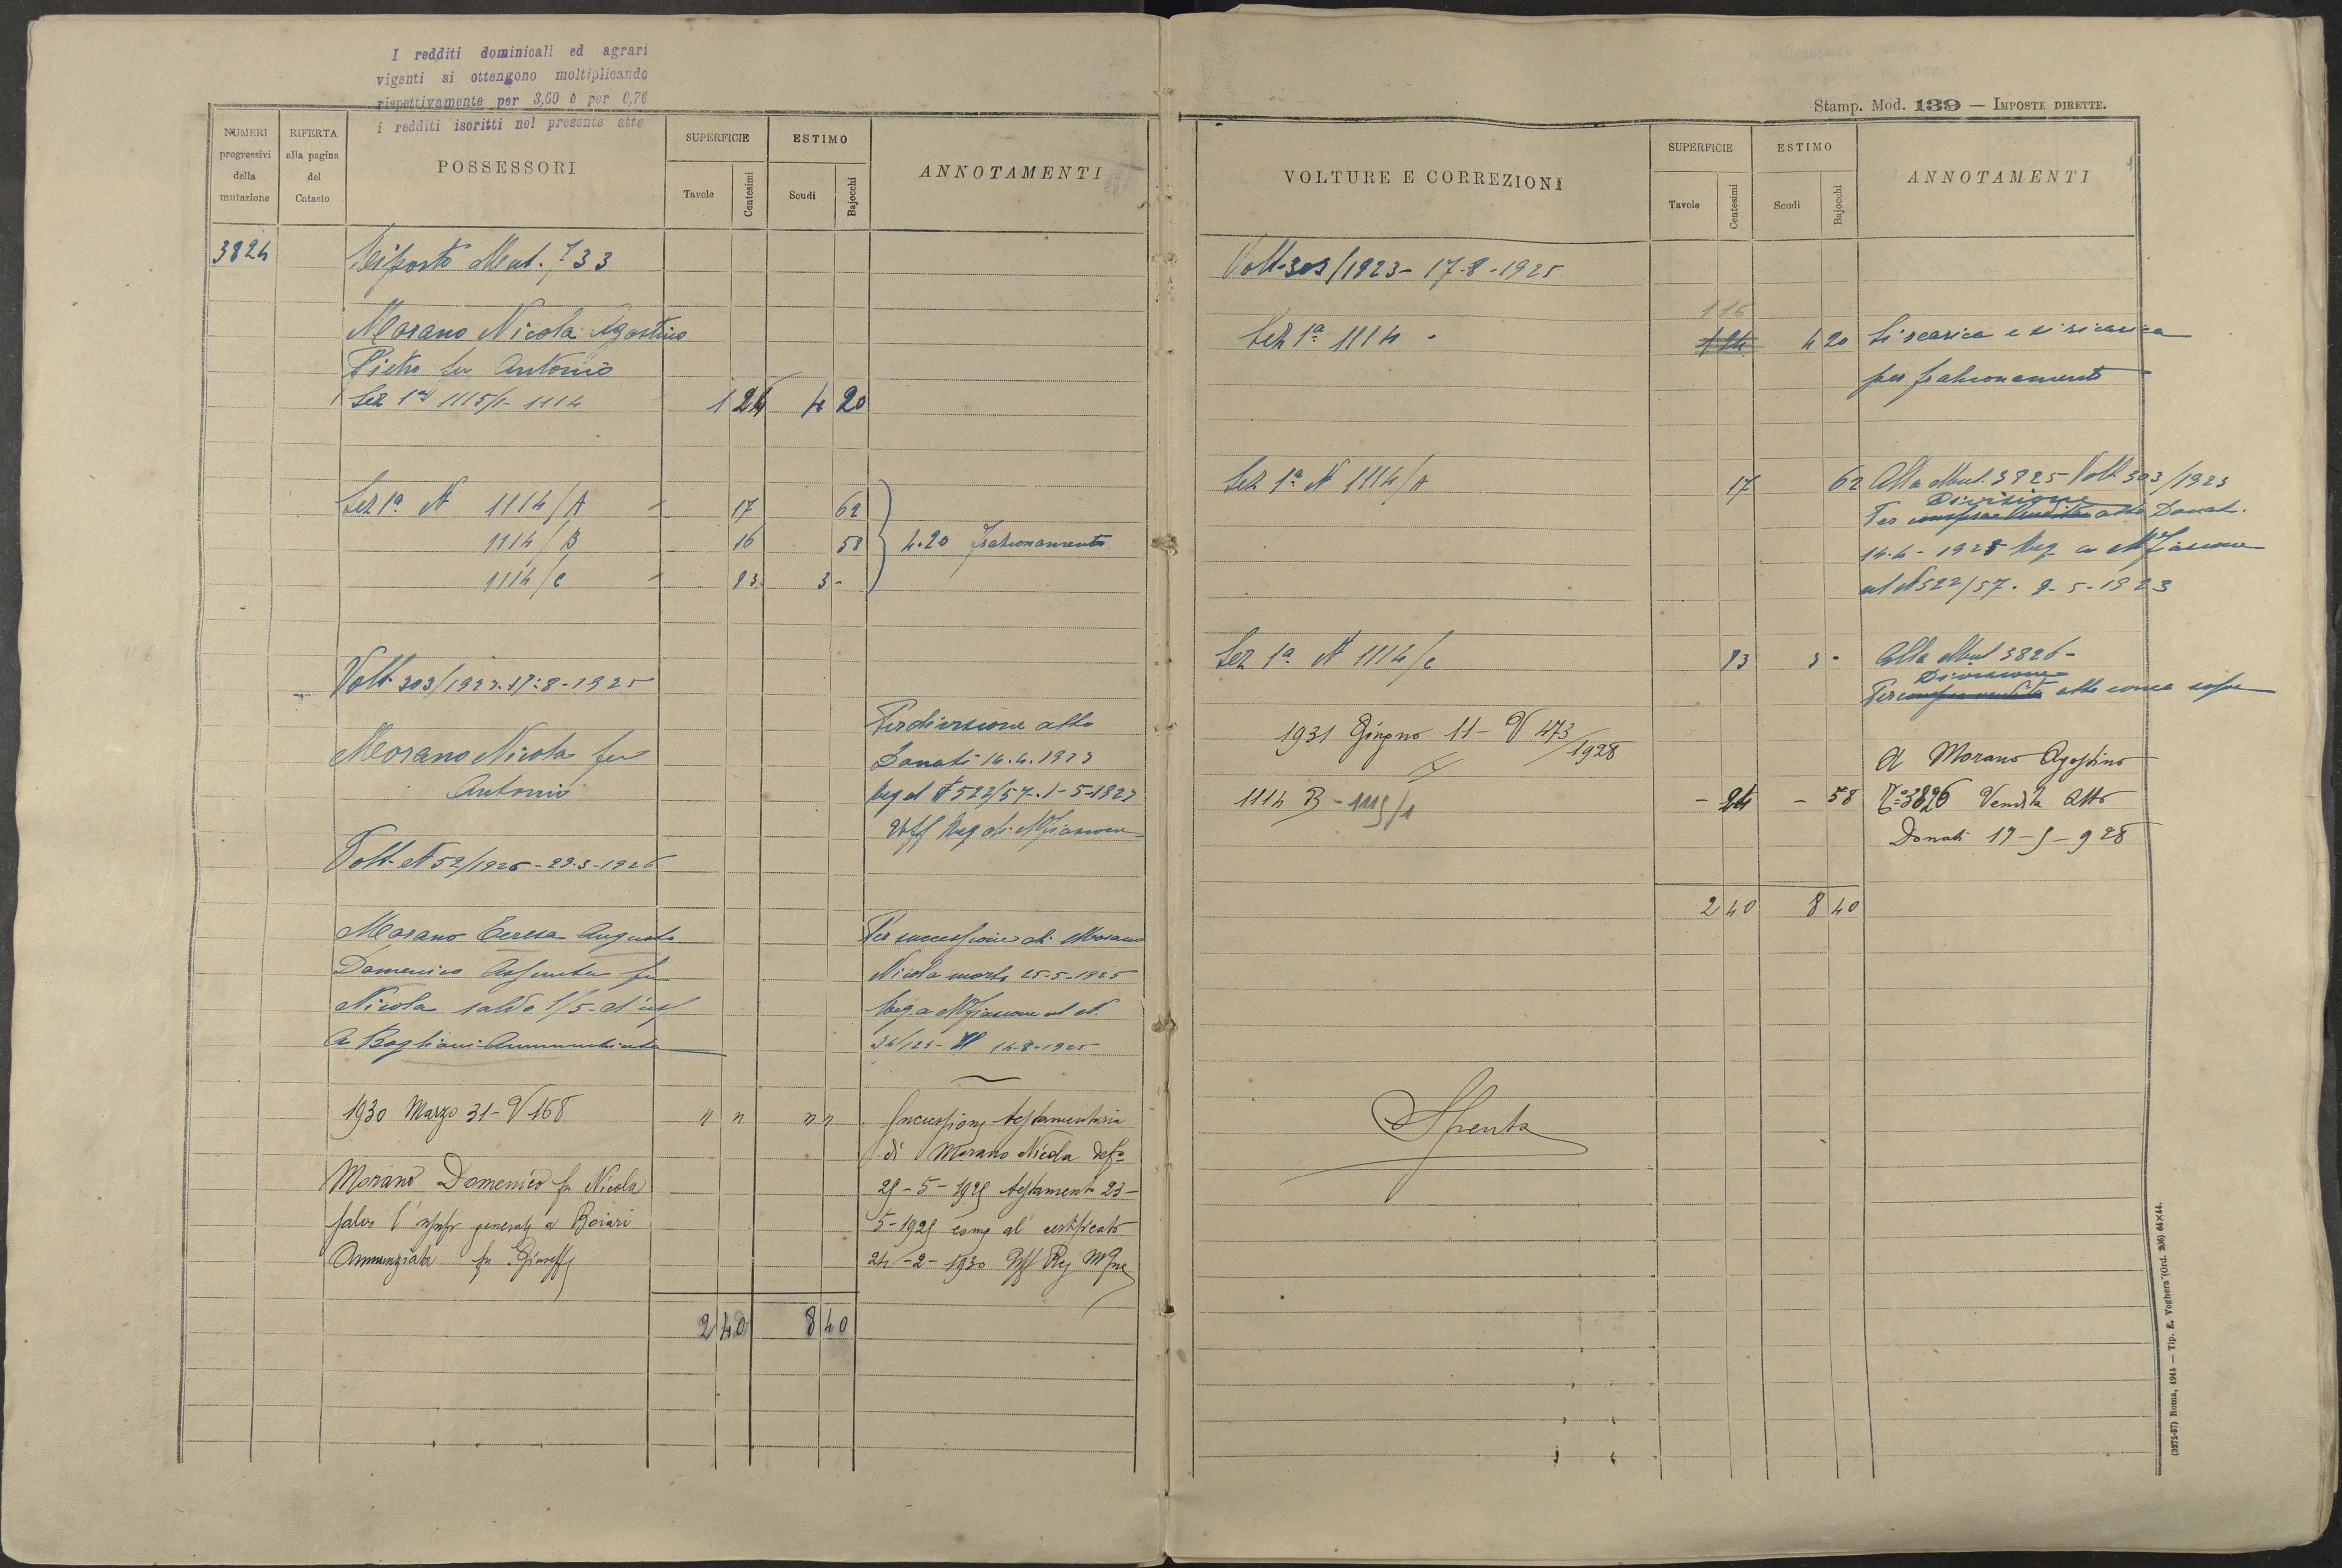 I redditi dominicali ed agrari
vigenti si ottengono moltiplicando
rispettivamente per 3,60 e per 0,70
i redditi iscritti nel presente atto
NUMERI progressivi della mutazione
RIFERTA alla pagina del Catasto
POSSESSORI
SUPERFICIE
Tavole
Centesimi
ESTIMO
Scudi
Bajocchi
ANNOTAMENTI
3824
Riporto Mut. 733
Morano Nicola Agostino
Pietro fu Antonio
Sez 1ª 1115/1 - 1114 1 24 4 20
Sez 1ª N 1114/A 17 62
1114/B 16 58 4.20 frazionamento
1114/C 83 3 -
Volt 303/1923 - 17-8-1925
Per divisione atto
Morano Nicola fu Donati 14.4.1923
Antonio Reg al N 522/57 - 1-5-1923
Uff Reg di Mfiascone
Volt N 52/1926 - 29-3-1926
Morano Teresa Augusto Per successione di Morano
Domenico Assunta fu Nicola morto 25-5-1925
Nicola salvo 1/5 d'usf Reg a Mfiascone al N.
a Bogliari Annunziata 34/125 - 14-8-1925
1930 Marzo 31 - V 168 " " " " Successione testamentaria
di Morano Nicola def°
Morano Domenico fu Nicola 25-5-1925 testamento 23-
salvo l'usufr generale a Boiari 5-1925 come al certificato
Annunziata fu Giuseppe 24-2-1930 Uff Reg Mfne
2 40 8 40
Stamp. Mod. 139 — IMPOSTE DIRETTE.
VOLTURE E CORREZIONI
SUPERFICIE
Tavole
Centesimi
ESTIMO
Scudi
Bajocchi
ANNOTAMENTI
Volt. 303/1923 - 17-8-1925
116
Sez 1ª 1114 - 1 24 4 20 Si scarica e si ricarica
per frazionamento
Sez 1ª N 1114/A 17 62 Alla Mut. 3825 Volt 303/1923
Divisione
Per compra vendita atto Donati
14-4-1923 Reg a Mfiascone
al N 522/57. 2-5-1923
Sez 1ª N 1114/C 83 3 - Alla Mut 3826 -
Divisione
Per compra vendita atto come sopra
1931 Giugno 11 - V 473/1928
A Morano Agostino
1114 B - 1115/1 - 24 - 58 N° 3826 Vendita Atto
Donati 17-5-928
2 40 8 40
Spenta
(3272-57) Roma, 1914 — Tip. E. Voghera (Ord. 206) 64×44.